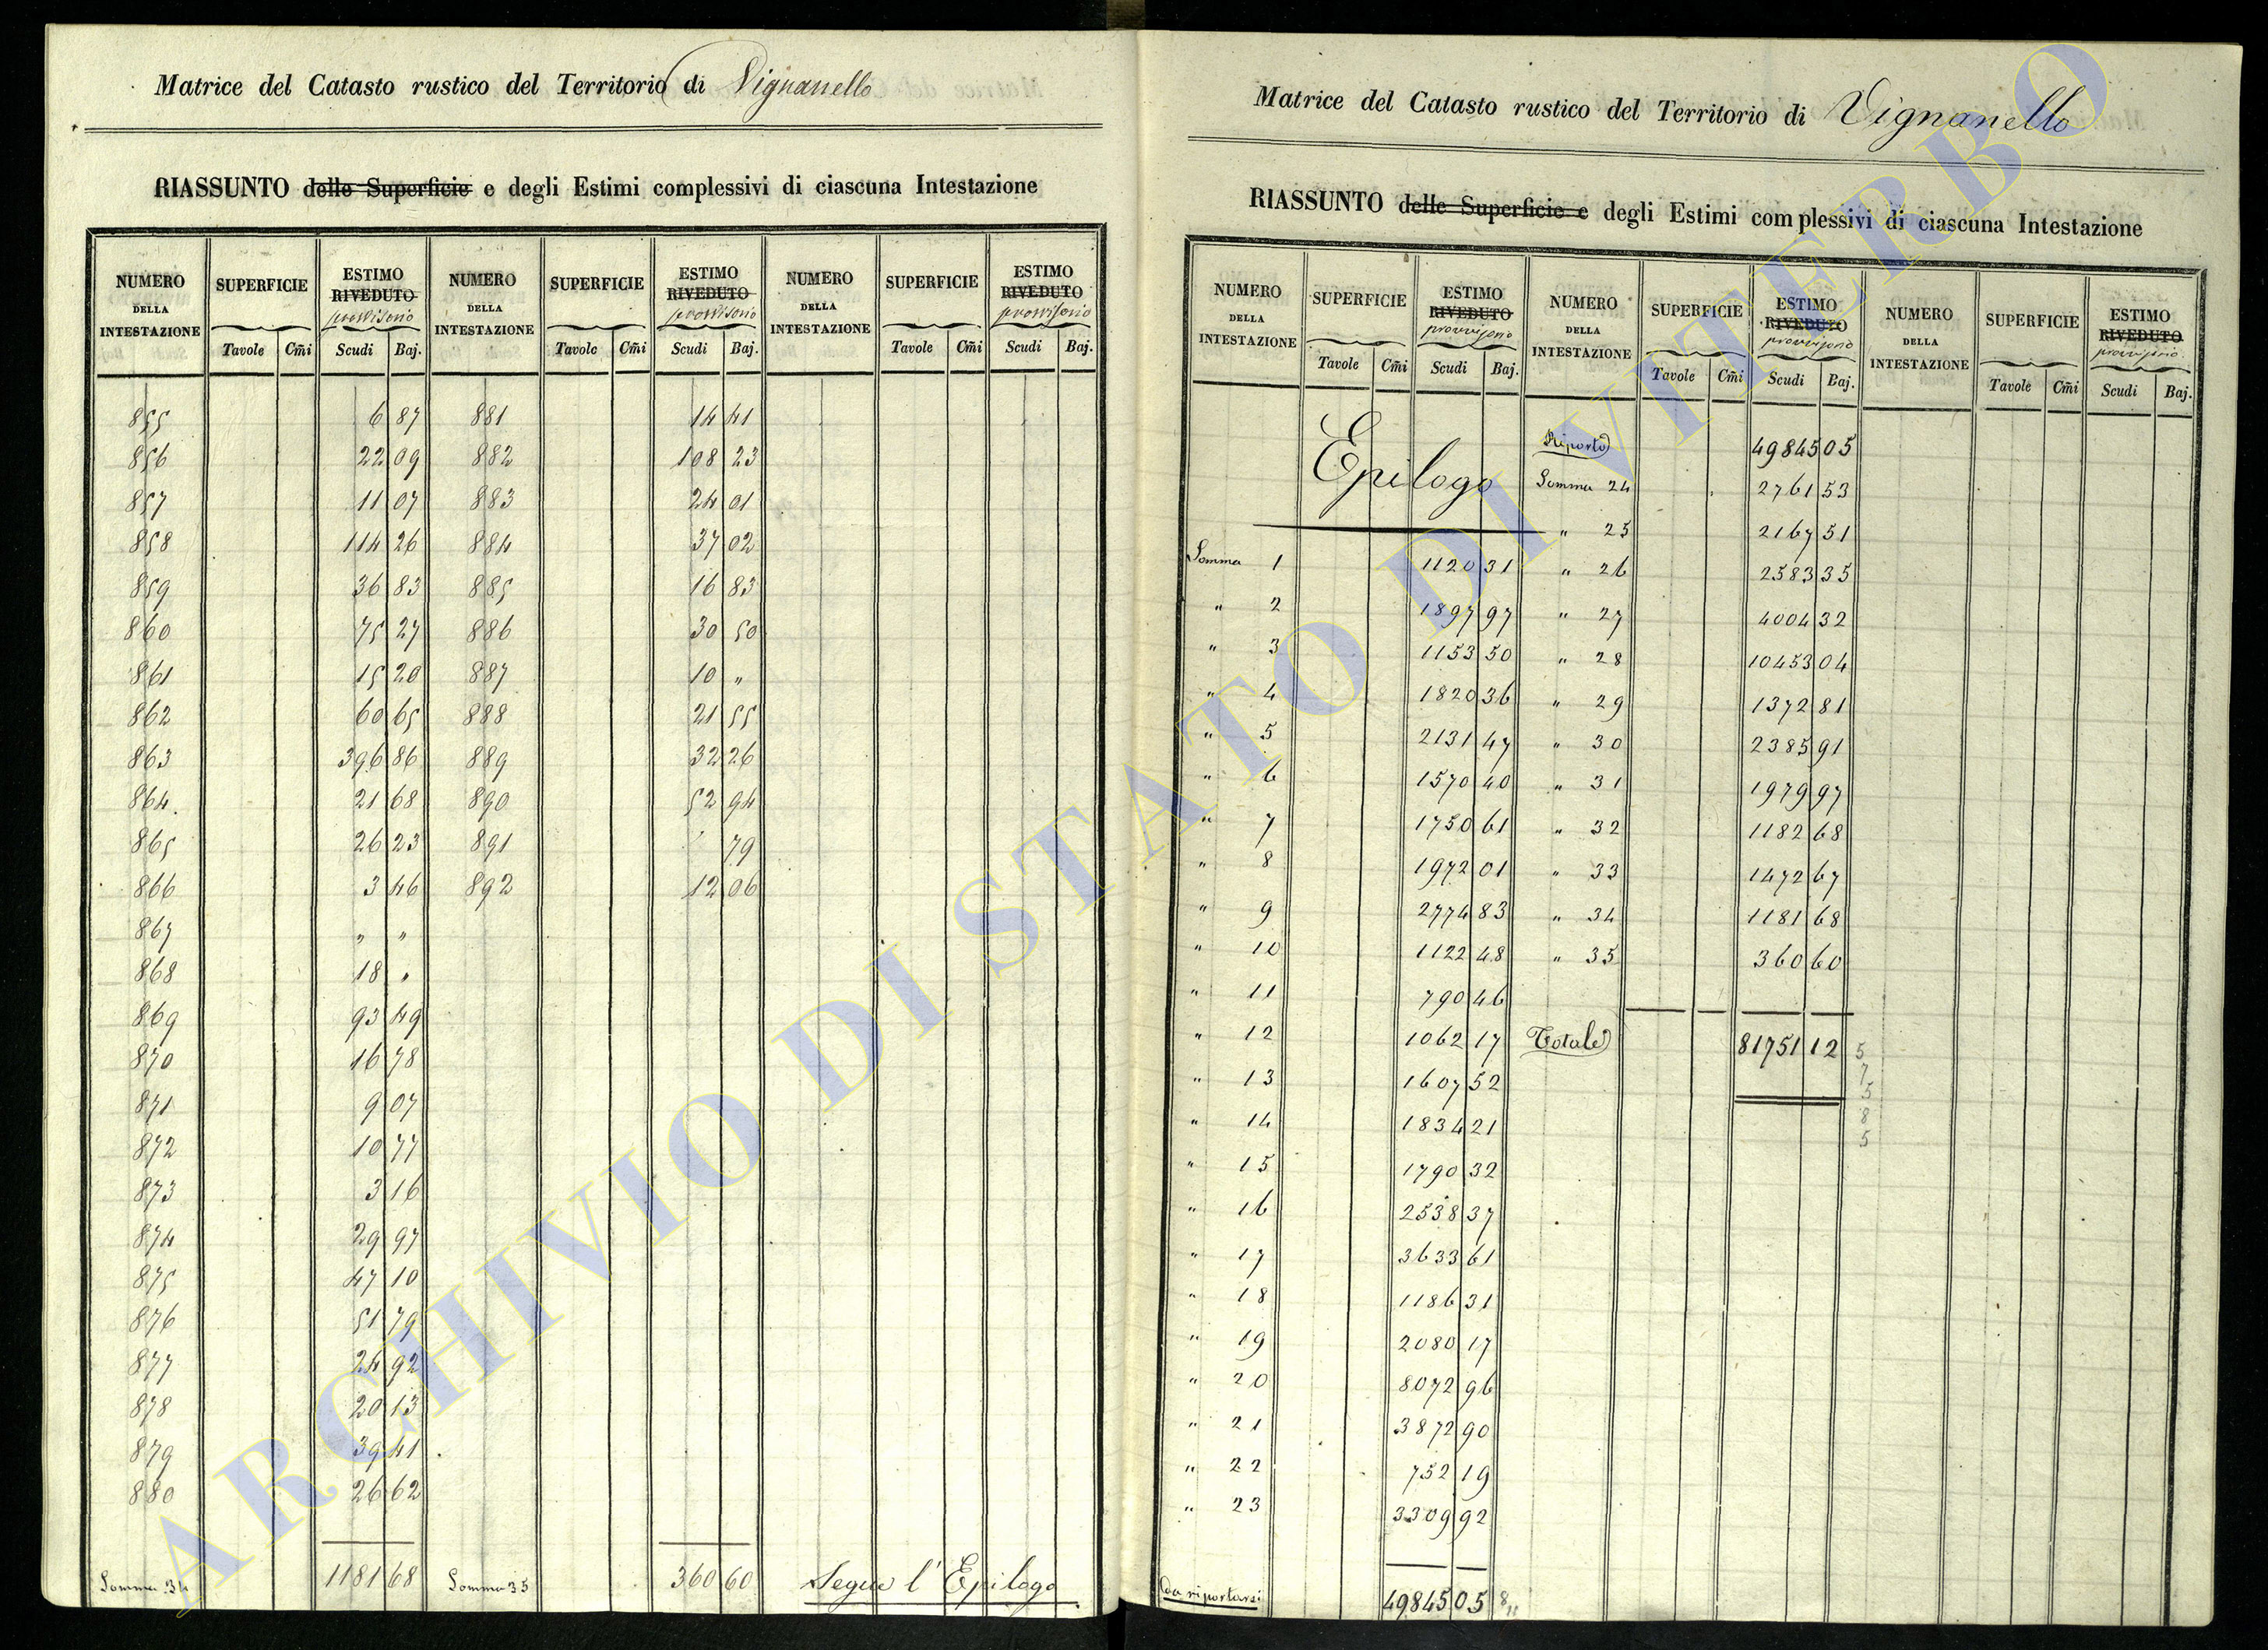 Matrice del Catasto rustico del Territorio di Vignanello
RIASSUNTO delle Superficie e degli Estimi complessivi di ciascuna Intestazione
NUMERO DELLA INTESTAZIONE SUPERFICIE ESTIMO RIVEDUTO provvisorio NUMERO DELLA INTESTAZIONE SUPERFICIE ESTIMO RIVEDUTO provvisorio NUMERO DELLA INTESTAZIONE SUPERFICIE ESTIMO RIVEDUTO provvisorio
Tavole Cm̃i Scudi Baj. Tavole Cm̃i Scudi Baj. Tavole Cm̃i Scudi Baj.
855 6 87 881 14 41
856 22 09 882 108 23
857 11 07 883 24 01
858 114 26 884 37 02
859 36 83 885 16 83
860 75 27 886 30 50
861 15 20 887 10 "
862 60 65 888 21 55
863 396 86 889 32 26
864 21 68 890 52 94
865 26 23 891 79
866 3 46 892 12 06
867 " "
868 18 "
869 93 49
870 16 78
871 9 07
872 10 77
873 3 16
874 29 97
875 47 10
876 51 79
877 24 92
878 20 13
879 39 41
880 26 62
Somma 34 1181 68 Somma 35 360 60 Segue l'Epilogo
Matrice del Catasto rustico del Territorio di Vignanello
RIASSUNTO delle Superficie e degli Estimi complessivi di ciascuna Intestazione
NUMERO DELLA INTESTAZIONE SUPERFICIE ESTIMO RIVEDUTO provvisorio NUMERO DELLA INTESTAZIONE SUPERFICIE ESTIMO RIVEDUTO provvisorio NUMERO DELLA INTESTAZIONE SUPERFICIE ESTIMO RIVEDUTO provvisorio
Tavole Cm̃i Scudi Baj. Tavole Cm̃i Scudi Baj. Tavole Cm̃i Scudi Baj.
Epilogo
Riporto 49845 05
Somma 24 2761 53
" 25 2167 51
Somma 1 1120 31 " 26 2583 35
" 2 1897 97 " 27 4004 32
" 3 1153 50 " 28 10453 04
" 4 1820 36 " 29 1372 81
" 5 2131 47 " 30 2385 91
" 6 1570 40 " 31 1979 97
" 7 1750 61 " 32 1182 68
" 8 1972 01 " 33 1472 67
" 9 2774 83 " 34 1181 68
" 10 1122 48 " 35 360 60
" 11 790 46
" 12 1062 17 Totale 81751 12 5
" 13 1607 52 7 5
" 14 1834 21 8 5
" 15 1790 32
" 16 2538 37
" 17 3633 61
" 18 1186 31
" 19 2080 17
" 20 8072 96
" 21 3872 90
" 22 752 19
" 23 3309 92
da riportarsi 49845 05
ARCHIVIO DI STATO DI VITERBO